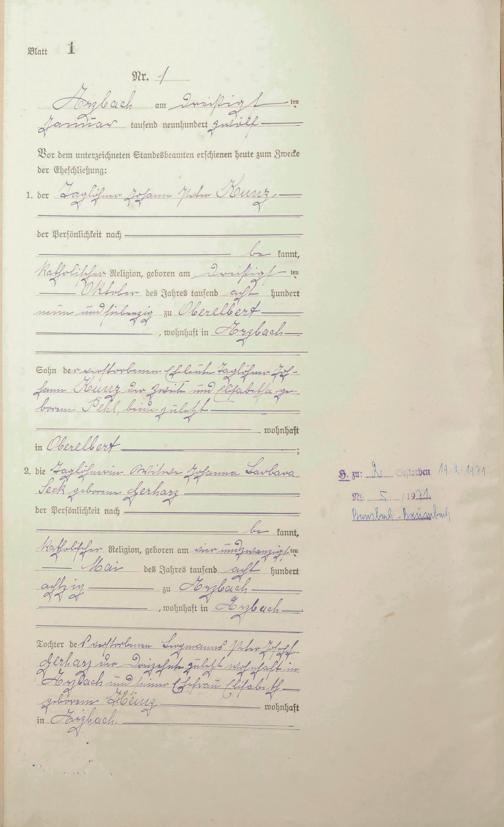 Blatt 1
Nr. 1
Arzbach am dreißigsten
Januar tausend neunhundert zwölf
Vor dem unterzeichneten Standesbeamten erschienen heute zum Zwecke
der Eheschließung:
1. der Taglöhner Johann Peter Kunz
der Persönlichkeit nach
be kannt,
katholischer Religion, geboren am dreißigsten
Oktober des Jahres tausend acht hundert
neun und siebenzig zu Oberelbert
, wohnhaft in Arzbach
Sohn der verstorbenen Eheleute Taglöhner Jo-
hann Kunz der Zweite und Elisabetha ge-
borene beide zuletzt
wohnhaft
in Oberelbert
2. die Taglöhnerin Witwe Johanna Barbara
geborene Gerharz
der Persönlichkeit nach
be kannt,
katholischer Religion, geboren am vier und zwanzigsten
Mai des Jahres tausend acht hundert
achtzig zu Arzbach
, wohnhaft in Arzbach
Tochter des verstorbenen Bergmanns Peter Josef
Gerharz der Dreizehnte zuletzt wohnhaft in
Arzbach und seiner Ehefrau Elisabeth
geborene wohnhaft
in Arzbach
zu:
Nr. 5 / 1971